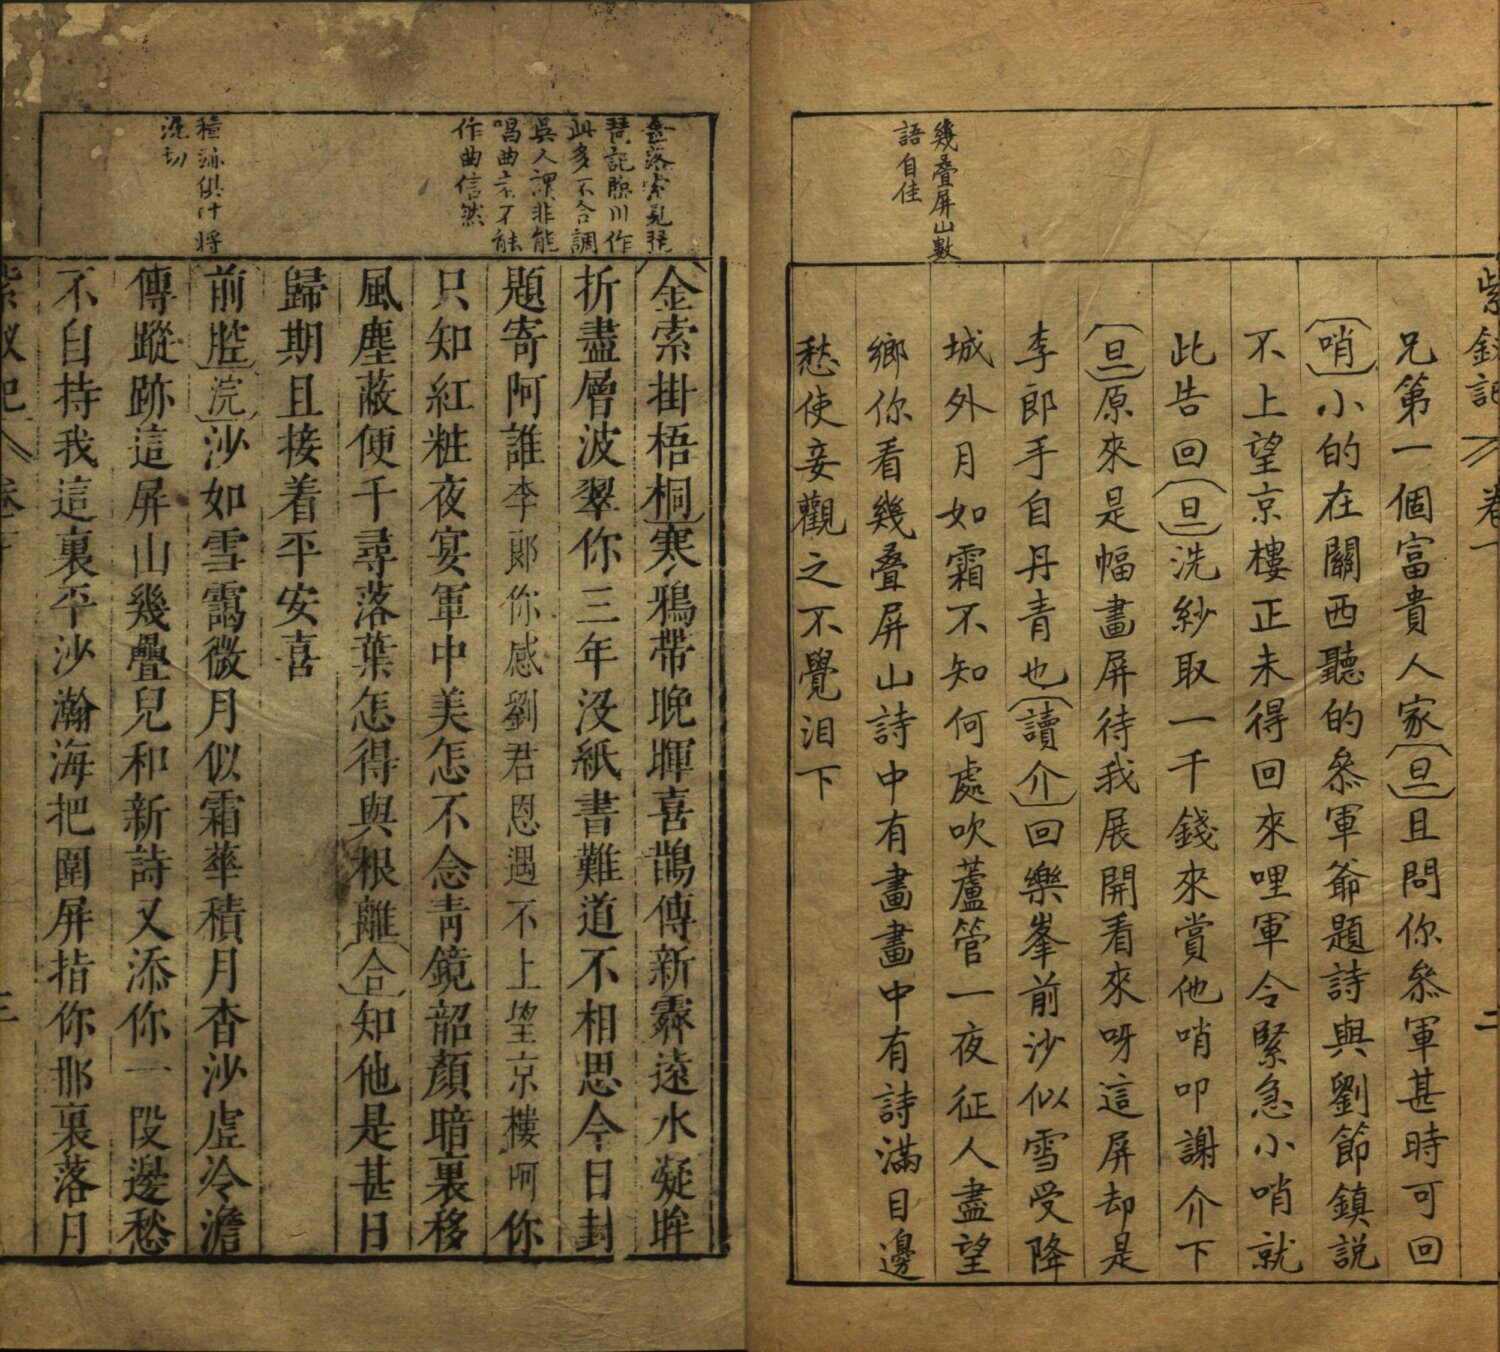 紫釵記 卷下 二
幾叠屏山數
語自佳
兄第一個富貴人家(旦)且問你叅軍甚時可回
(哨)小的在關西聽的叅軍爺題詩與劉節鎮説
不上望京樓正未得回來哩軍令緊急小哨就
此告回(旦)洗紗取一千錢來賞他哨叩謝介下
(旦)原來是幅畫屏待我展開看來呀這屏却是
李郎手自丹青也(讀介)回樂峯前沙似雪受降
城外月如霜不知何處吹蘆管一夜征人盡望
鄉你看幾叠屏山詩中有畫畫中有詩滿目邊
愁使妾觀之不覺泪下
金落索見琵
琶記臨川作
此多不合調
吳人謂非能
唱曲亦不能
作曲信然
種詠俱什將
洗切
(金索掛梧桐)寒鴉帶晚暉喜鵲傳新霽遠水凝眸
折盡層波翠你三年没紙書難道不相思今日封
題寄阿誰李郎你感劉君恩遇不上望京樓呵你
只知紅粧夜宴軍中美怎不念青鏡韶顏暗裏移
風塵蔽便千尋落葉怎得與根離(合)知他是甚日
歸期且接着平安喜
(前腔)(浣)沙如雪靄微月似霜華積月杳沙虛冷澹
傳蹤跡這屏山幾疊兒和新詩又添你一段邊愁
不自持我這裏平沙瀚海把圍屏指你那裏落月
紫釵記 卷下 三